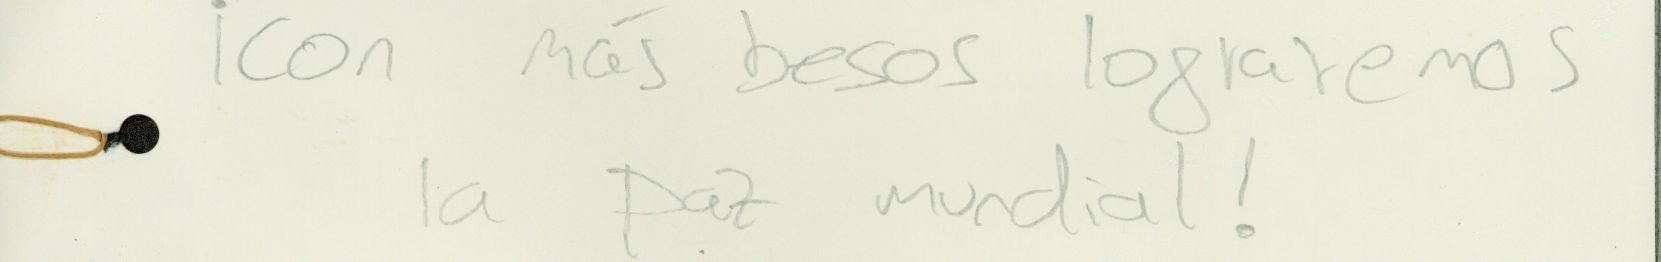 ¡con más besos lograremos
la paz mundial!